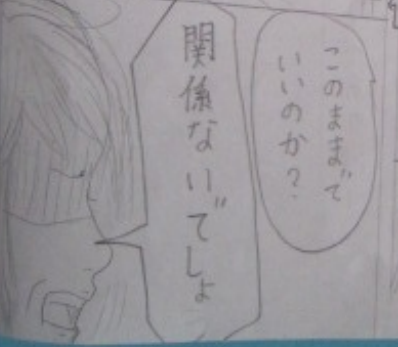 このままで
いいのか？
関係ないでしょ